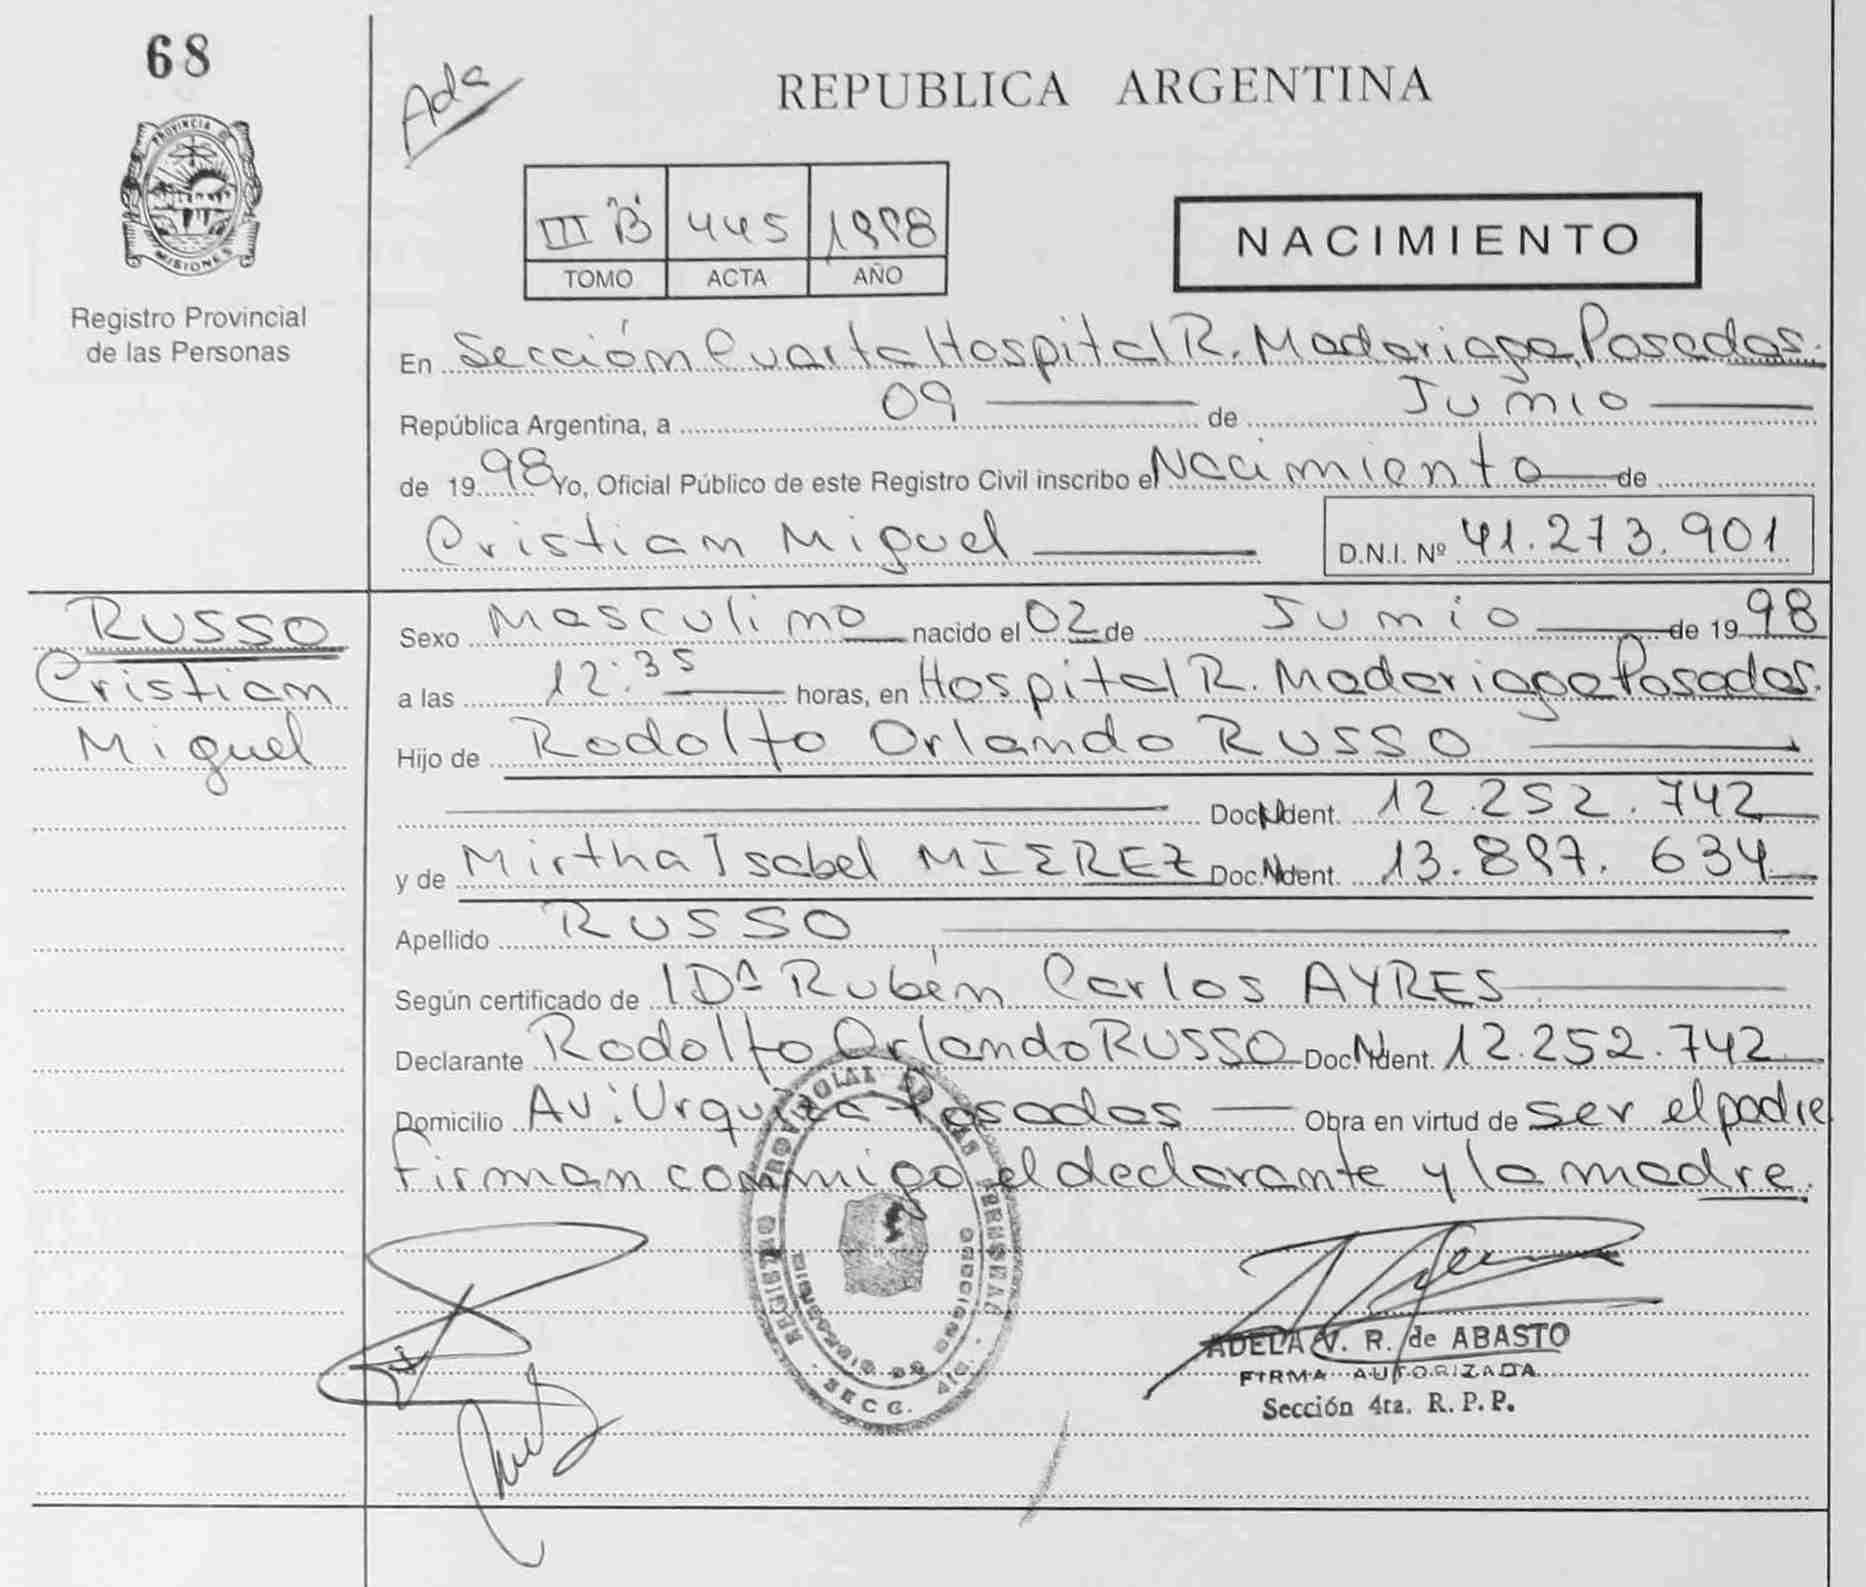 68
PROVINCIA DE
MISIONES
Registro Provincial
de las Personas
Ada
REPUBLICA ARGENTINA
III "B" 445 1998
TOMO ACTA AÑO
NACIMIENTO
En Sección Cuarta Hospital R. Madariaga, Posadas.
República Argentina, a 09 de Junio
de 1998 Yo, Oficial Público de este Registro Civil inscribo el Nacimiento de
Cristian Miguel D.N.I. Nº 41.273.901
RUSSO
Cristian
Miguel
Sexo Masculino nacido el 02 de Junio de 1998
a las 12:35 horas, en Hospital R. Madariaga Posadas.
Hijo de Rodolfo Orlando RUSSO
Doc. Ident. 12.252.742
y de Mirtha Isabel MIEREZ Doc. Ident. 13.897.634
Apellido RUSSO
Según certificado de Rubén Carlos AYRES
Declarante Rodolfo Orlando RUSSO Doc. Ident. 12.252.742
Domicilio Av: Urquiza Posadas Obra en virtud de ser el padre
Firman conmigo el declarante y la madre.
REGISTRO PROVINCIAL DE LAS PERSONAS
SECC. 4ta.
ADELA V. R. de ABASTO
FIRMA AUTORIZADA
Sección 4ta. R. P. P.